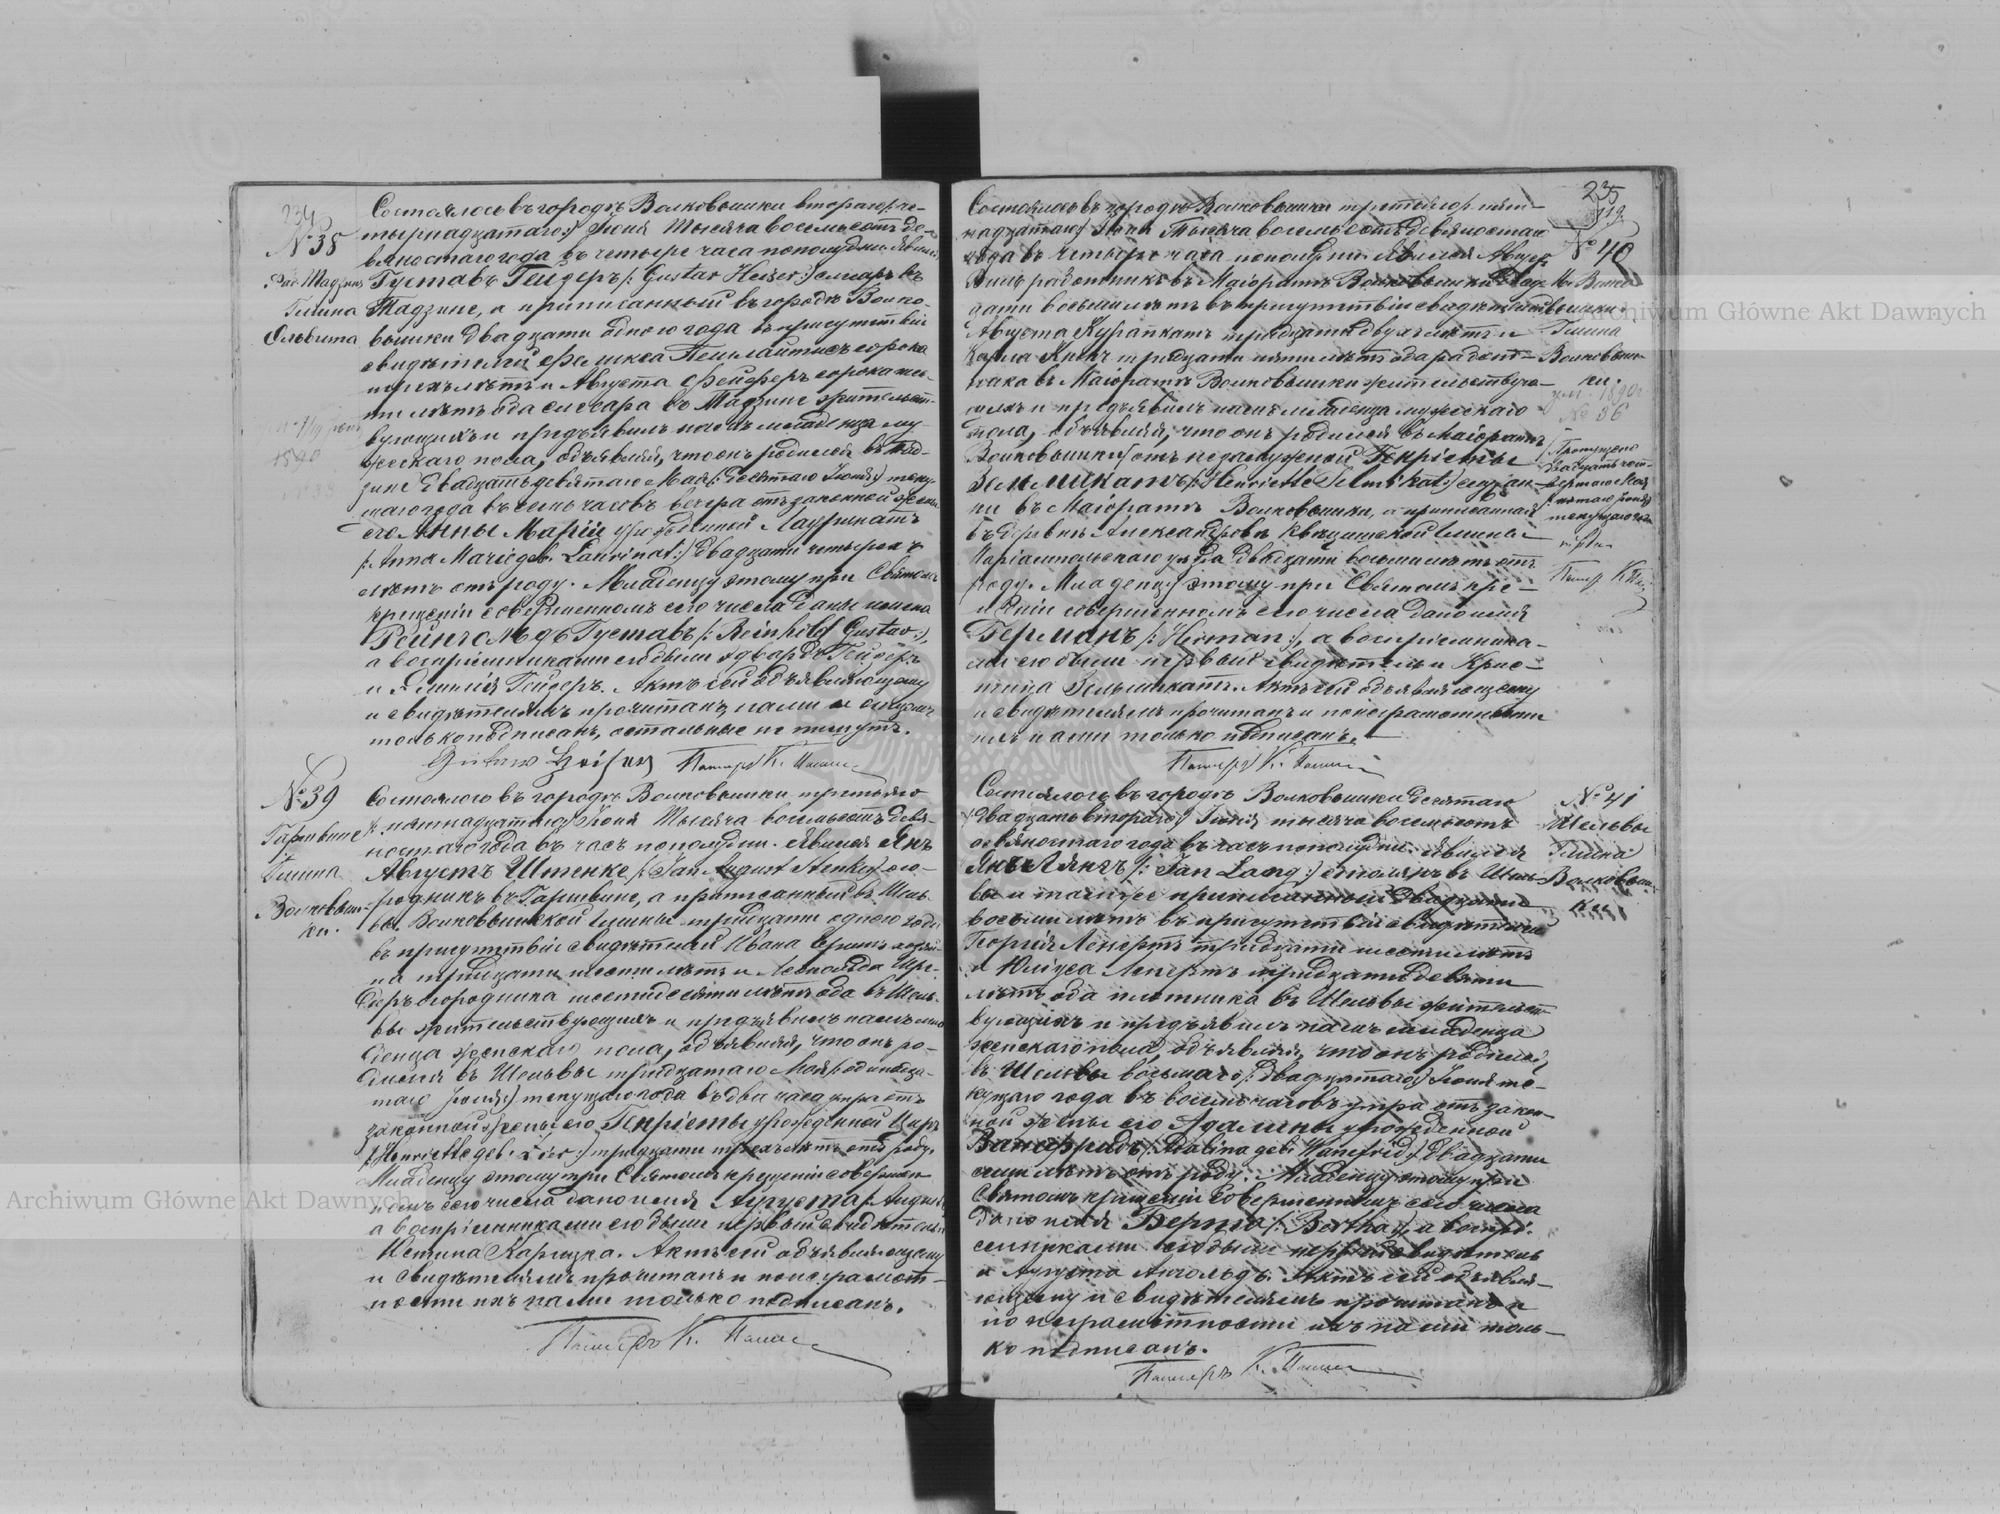 234
№ 38
Фад. Мадзине
Гмина
Ольвита
1890
Состоялось въ городѣ Волковышки втораго /: че-
тырнадцатаго :/ Iюня Тысяча восемьсотъ де-
вяностаго года въ четыре часа пополудни. Явился
Густавъ Гейзеръ /: Gustav Heiser :/ слесарь въ
Мадзине, а приписанный въ городѣ Волко-
вышки двадцати одного года въ присутствіи
свидѣтелей Феликса сорока
трехъ лѣтъ и Августа Фейферъ сорока
лѣтъ оба слесаря въ Мадзине жительст-
вующихъ и предъявилъ намъ младенца му-
жескаго пола, объявляя, что онъ родился въ Мад-
зине двадцать девятаго Мая /: десятаго Iюня :/ теку-
щаго года въ семь часовъ вечера отъ законной жены
его Анны Маріи урожденной Лауринатъ
/: Anna Marie geb. Laurinat :/ двадцати четырехъ
лѣтъ отъ роду. Младенцу этому при Святомъ
крещеніи совершенномъ сего числа даны имена
Рейнгольдъ Густавъ /: Reinhold Gustav :/,
а воспріемниками его были Эдвардъ Гейзеръ
и Гейзеръ. Актъ сей объявляющему
и свидѣтелямъ прочитанъ, нами и отцомъ
только подписанъ, остальные не пишутъ.
Gustaw Heiser Пасторъ К.
№ 39
Гмина
Волковыш-
ки.
Состоялось въ городѣ Волковышки третьяго
/: пятнадцатаго :/ Iюня Тысяча восемьсотъ девя-
ностаго года въ часъ пополудни. Явился Янъ
Августъ Штенке /: Jan August Stenke :/ ого-
родникъ въ а приписанный въ Шель-
вы Волковышской Гмины тридцати одного года
въ присутствіи свидѣтелей Ивана
тридцати шести лѣтъ и Леопольда
огородника шестидесяти лѣтъ оба въ Шель-
вы жительствующихъ и предъявилъ намъ мла-
денца женскаго пола, объявляя, что онъ ро-
дился въ Шельвы тридцатаго Мая /: одинадца-
таго Iюня :/ текущаго года въ два часа утра отъ
законной жены его Генріеты урожденной
/: Henriette geb. :/ тридцати трехъ лѣтъ отъ роду.
Младенцу этому при Святомъ крещеніи совершен-
номъ сего числа дано имя Аугуста /: Auguste :/
а воспріемниками его были первый свидѣтель и
Актъ сей объявляющему
и свидѣтелямъ прочитанъ и по неграмот-
ности ихъ нами только подписанъ.
Пасторъ К.
235
№ 40
Волковышки.
Гмина
Волковыш-
ки.
1890
№ 36
Пропущено
двадцать чет-
вертаго Мая
/: пятаго Iюня :/
текущаго года
Состоялось въ городѣ Волковышки третьяго /: пят-
надцатаго :/ Iюня Тысяча восемьсотъ девяностаго
года въ четыре часа пополудни. Явился Августъ
работникъ въ Маіоратѣ Волковышки двад-
цати восьми лѣтъ въ присутствіи свидѣтелей
Августа Курапкатъ тридцати двухъ лѣтъ и
Карла тридцати пяти лѣтъ оба работ-
ника въ Маіоратѣ Волковышки жительствую-
щихъ и предъявилъ намъ младенца мужескаго
пола, объявляя, что онъ родился въ Маіоратѣ
Волковышки отъ незамужней Генріеты
Зельмикатъ /: Henriette Selmikat :/ служан-
ки въ Маіоратѣ Волковышки, а приписанной
въ деревнѣ Александровѣ Гмины
Маріампольскаго уѣзда двадцати восьми лѣтъ отъ
роду. Младенцу этому при Святомъ кре-
щеніи совершенномъ сего числа дано имя
Германъ /: Herman :/, а воспріемника-
ми его были первый свидѣтель и Крис-
тина Зельмикатъ. Актъ сей объявляющему
и свидѣтелямъ прочитанъ и по неграмотности
ихъ нами только подписанъ.
Пасторъ К.
№ 41
Шельвы
Гмина
Волковыш-
ки
Состоялось въ городѣ Волковышки десятаго
/: двадцать втораго :/ Iюня тысяча восемьсотъ
девяностаго года въ часъ пополудни. Явился
Янъ Лянгъ /: Jan Lang :/ столяръ въ Шель-
вы и тамъ же приписанный двадцати
восьми лѣтъ въ присутствіи свидѣтелей
Георгія Ленертъ тридцати шести лѣтъ
и Юліуса Ленертъ тридцати девяти
лѣтъ оба плотника въ Шельвы жительст-
вующихъ и предъявилъ намъ младенца
женскаго пола, объявляя, что онъ родился
въ Шельвы восьмаго /: двадцатаго :/ Iюня те-
кущаго года въ восемь часовъ утра отъ закон-
ной жены его Адалины урожденной
Ванфридъ /: Adalina geb. Wanfried :/ двадцати
лѣтъ отъ роду. Младенцу этому при
Святомъ крещеніи совершенномъ сего числа
дано имя Берта /: Bertha :/, а воспрі-
емниками его были первый свидѣтель
и Аугуста Актъ сей объявля-
ющему и свидѣтелямъ прочитанъ и
по неграмотности ихъ нами толь-
ко подписанъ.
Пасторъ К.
Archiwum Główne Akt Dawnych
Archiwum Główne Akt Dawnych